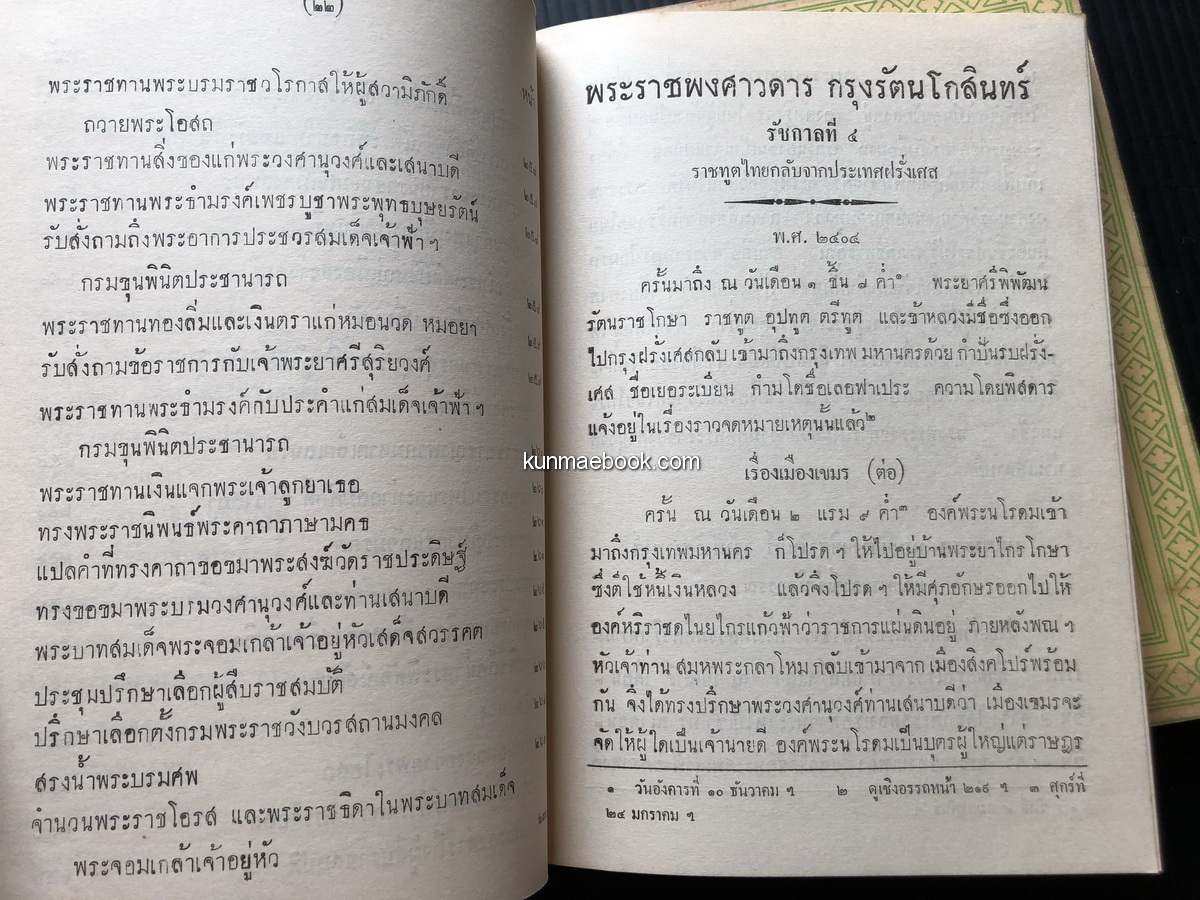 (๒๒)
หน้า
พระราชทานพระบรมราชวโรกาสให้ผู้สวามิภักดิ์
ถวายพระโอสถ
พระราชทานสิ่งของแก่พระวงศานุวงศ์และเสนาบดี
พระราชทานพระธำมรงค์เพชรบูชาพระพุทธบุษยรัตน์
รับสั่งถามถึงพระอาการประชวรสมเด็จเจ้าฟ้า ฯ
กรมขุนพินิตประชานารถ
พระราชทานทองลิ่มและเงินตราแก่หมอนวด หมอยา
รับสั่งถามข้อราชการกับเจ้าพระยาศรีสุริยวงศ์
พระราชทานพระธำมรงค์กับประคำแก่สมเด็จเจ้าฟ้า ฯ
กรมขุนพินิตประชานารถ
พระราชทานเงินแจกพระเจ้าลูกยาเธอ
ทรงพระราชนิพนธ์พระคาถาภาษามคธ
แปลคำที่ทรงคาถาขอขมาพระสงฆ์วัดราชประดิษฐ์
ทรงขอขมาพระบรมวงศานุวงศ์และท่านเสนาบดี
พระบาทสมเด็จพระจอมเกล้าเจ้าอยู่หัวเสด็จสวรรคต
ประชุมปรึกษาเลือกผู้สืบราชสมบัติ
ปรึกษาเลือกตั้งกรมพระราชวังบวรสถานมงคล
สรงน้ำพระบรมศพ
จำนวนพระราชโอรส และพระราชธิดาในพระบาทสมเด็จ
พระจอมเกล้าเจ้าอยู่หัว
พระราชพงศาวดาร กรุงรัตนโกสินทร์
รัชกาลที่ ๔
ราชทูตไทยกลับจากประเทศฝรั่งเศส
พ.ศ. ๒๔๐๔
ครั้นมาถึง ณ วันเดือน ๑ ขึ้น ๘ ค่ำ๑ พระยาศรีพิพัฒน์
รัตนราชโกษา ราชทูต อุปทูต ตรีทูต และข้าหลวงมีชื่อซึ่งออก
ไปกรุงฝรั่งเศสกลับ เข้ามาถึงกรุงเทพ มหานครด้วย กำปั่นรบฝรั่ง-
เศส ชื่อเยอระเบียน กำมโดชื่อเลอฟาเประ ความโดยพิสดาร
แจ้งอยู่ในเรื่องราวจดหมายเหตุนั้นแล้ว๒
เรื่องเมืองเขมร (ต่อ)
ครั้น ณ วันเดือน ๒ แรม ๙ ค่ำ๓ องค์พระนโรดมเข้า
มาถึงกรุงเทพมหานคร ก็โปรด ฯ ให้ไปอยู่บ้านพระยาไกรโกษา
ซึ่งตีใช้หนี้เงินหลวง แล้วจึงโปรด ฯ ให้มีศุภอักษรออกไปให้
องค์หริราชดไนยไกรแก้วฟ้าว่าราชการแผ่นดินอยู่ ภายหลังพณ ฯ
หัวเจ้าท่าน สมุหพระกลาโหม กลับเข้ามาจาก เมืองสิงคโปร์พร้อม
กัน จึงได้ทรงปรึกษาพระวงศานุวงศ์ท่านเสนาบดีว่า เมืองเขมรจะ
จัดให้ผู้ใดเป็นเจ้านายดี องค์พระนโรดมเป็นบุตรผู้ใหญ่แต่ราษฎร
๑ วันอังคารที่ ๑๐ ธันวาคม ฯ ๒ ดูเชิงอรรถหน้า ๒๑๙ ฯ ๓ ศุกร์ที่
๒๔ มกราคม ฯ
kunmaebook.com